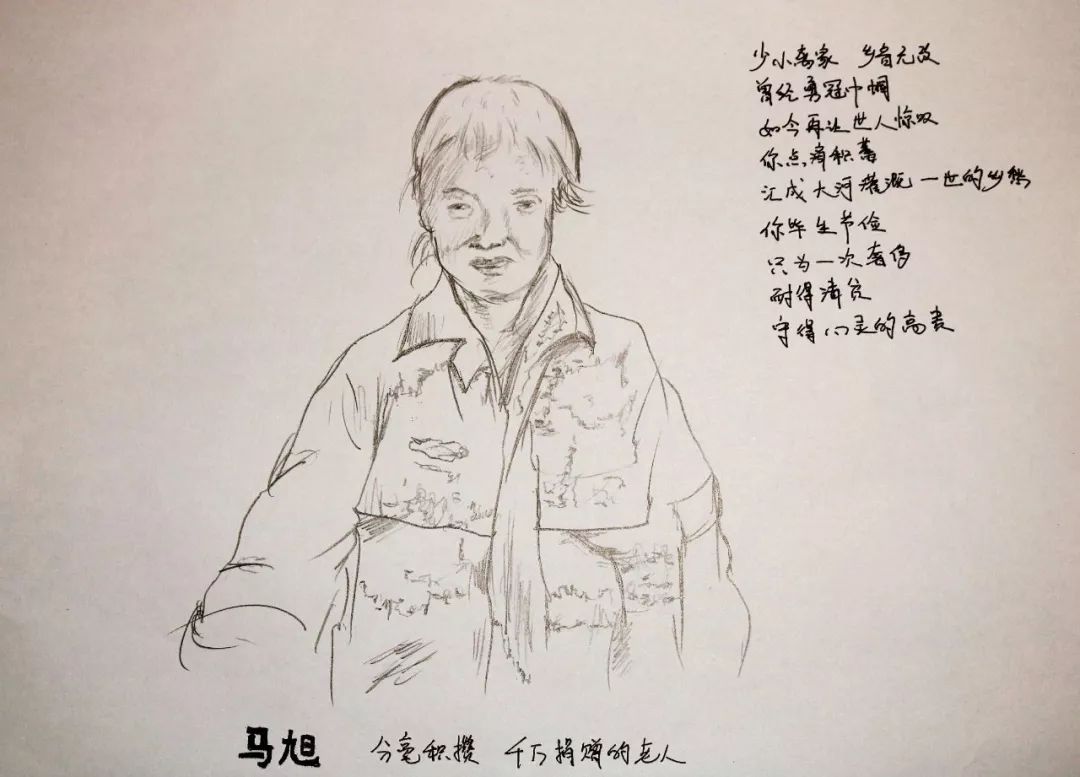 少小离家 乡音无改
曾经勇冠巾帼
如今再让世人惊叹
你点滴积蓄
汇成大河灌溉一世的乡愁
你毕生节俭
只为一次奢侈
耐得清贫
守得心灵的高贵
马旭 分毫积攒 千万捐赠的老人